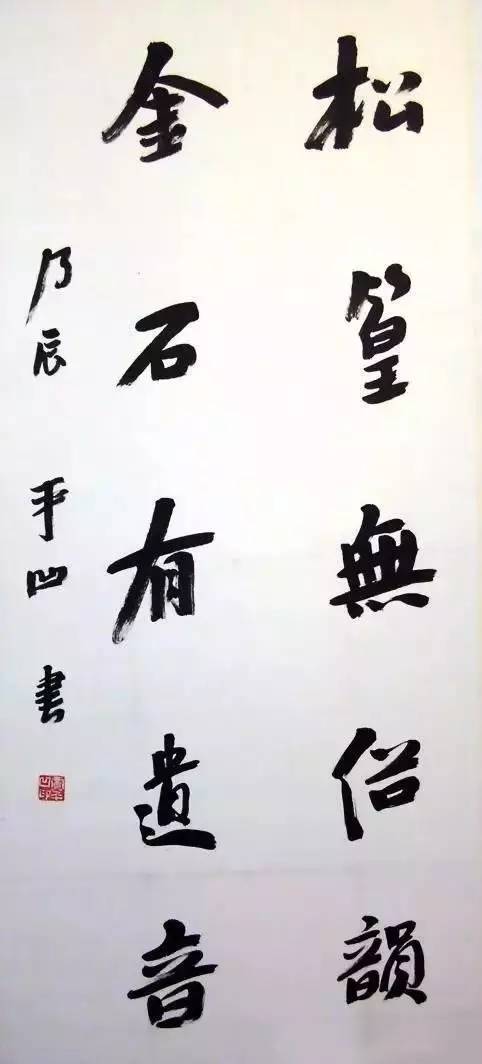 松篁無俗韻
金石有遺音
乃辰 平凹 書